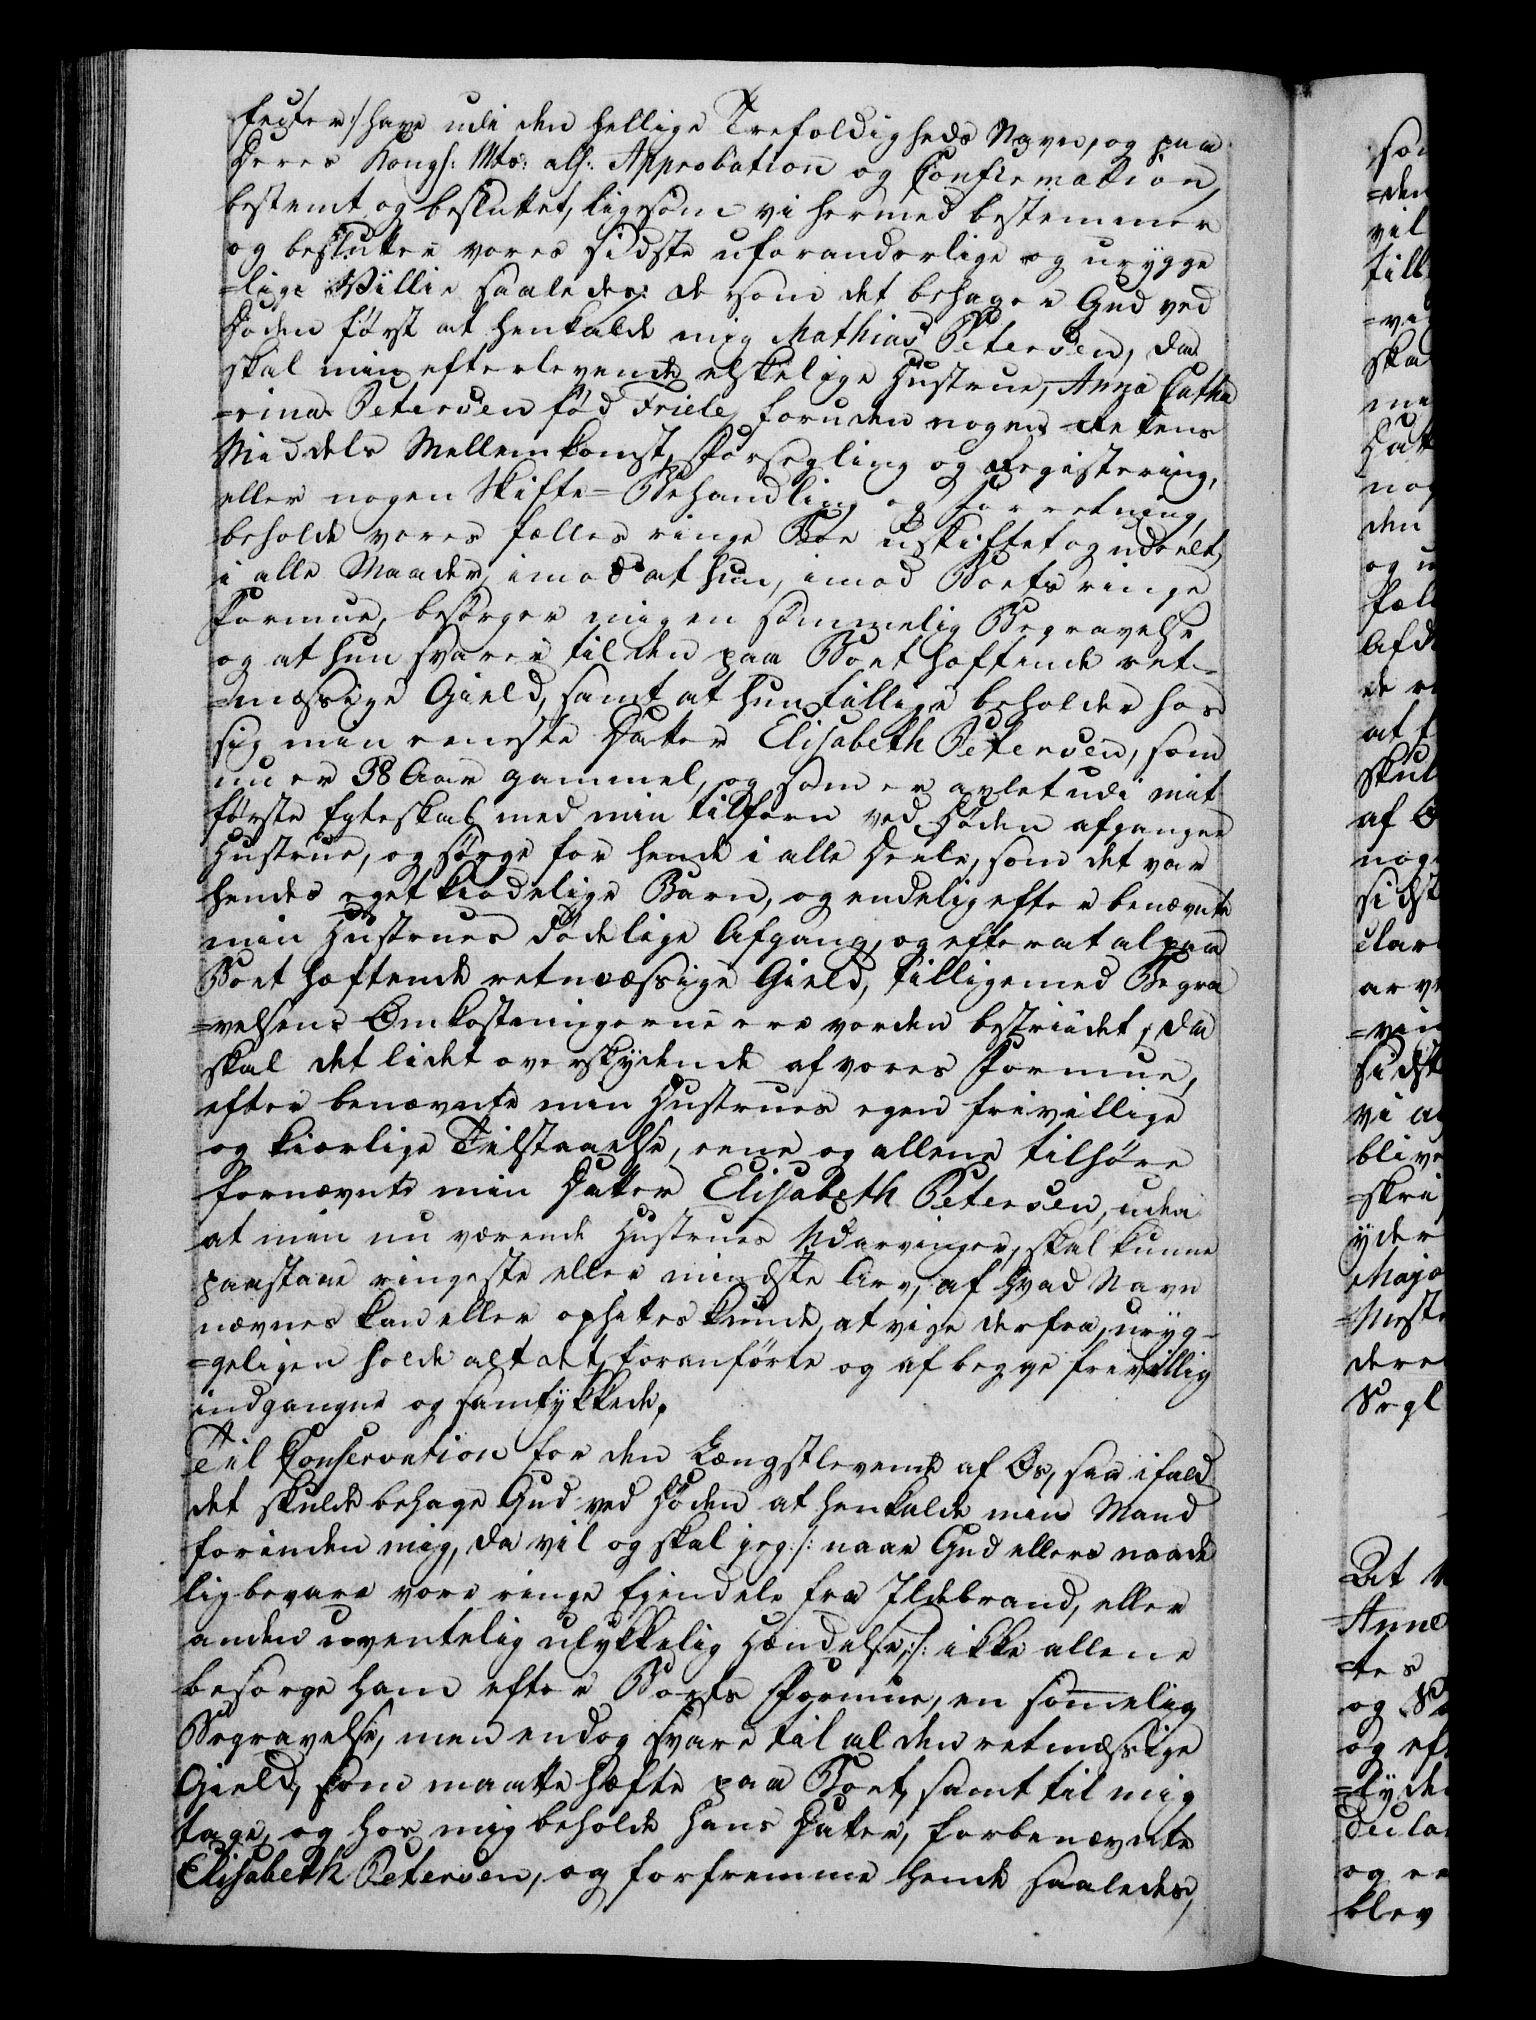 fecter:/ have udi den hellige Trefoldigheds Navn, og paa
Deres Kongl: Mts: all: Approbation og Confirmation,
bestemt og besluttet, ligesom vi hermed bestemmer
og beslutter vores sidste uforanderlige og urygge
=lige Villie saaledes: dersom det behager Gud ved
Døden først at henkalde mig Mathias Petersen, da
skal min efterlevende elskelige Hustrue, Anna Catha
=rina Petersen fød Friele, foruden nogen Rettens
Middels Mellemkomst, Forsegling og Registering,
eller nogen Skifte=Behandling og Forretning,
beholde vores fælles ringe Boe uskiftet og udeelt,
i alle Maader, imod at hun, imod Boets ringe
Formue, besørger mig en sømmelig Begravelse
og at hun svarer til den paa Boet hæftende ret=
=mæssige Gield, samt at hun tillige beholder hos
sig min eeneste Datter Elisabeth Petersen, som
nu er 38 Aar gammel, og som er avlet udi mit
første Egteskab med min tilforn ved Døden afgangne
Hustrue, og sørge for hende i alle Deele, som det var
hendes eget kiødelige Barn, og endelig efter benævnte
min Hustrues dødelige Afgang, og efter at al paa
Boet hæftende retmæssige Gield, tilligemed Begra
=velsens Omkostningerne ere vorden bestridet, da
skal det lidet overskydende af vores Formue,
efter benævnte min Hustrues egen frivillige
og kiærlige Tilstaaelse, eene og allene tilhøre
fornævnte min Datter Elisabeth Petersen, uden
at min nu værende Hustrues Udarvinger, skal kunne
paastaae ringeste eller mindste Arv, af hvad Navn
nævnes kan eller ophittes kunde, at vige derfra, uryg=
=geligen holde alt det foranførte og af begge frevillig
indgangne og samtykkede.
Til Conservation for den Længstlevende af Os, saa ifald
det skulde behage Gud ved Døden at henkalde min Mand
forinden mig, da vil og skal jeg /: naar Gud ellers naade
lig bevare vore ringe Ejendele fra Ildebrand, eller
anden uventelig ulykkelig Hændelse :/: ikke allene
besørge ham efter Boets Formue, en sømelig
Begravelse, men endog svare til al den retmæssige
Gield, som maatte hæfte paa Boet, samt til mig
tage, og hos mig beholde hans Datter, forbenævnte
Elisabeth Petersen, og forfremme hende saaledes,